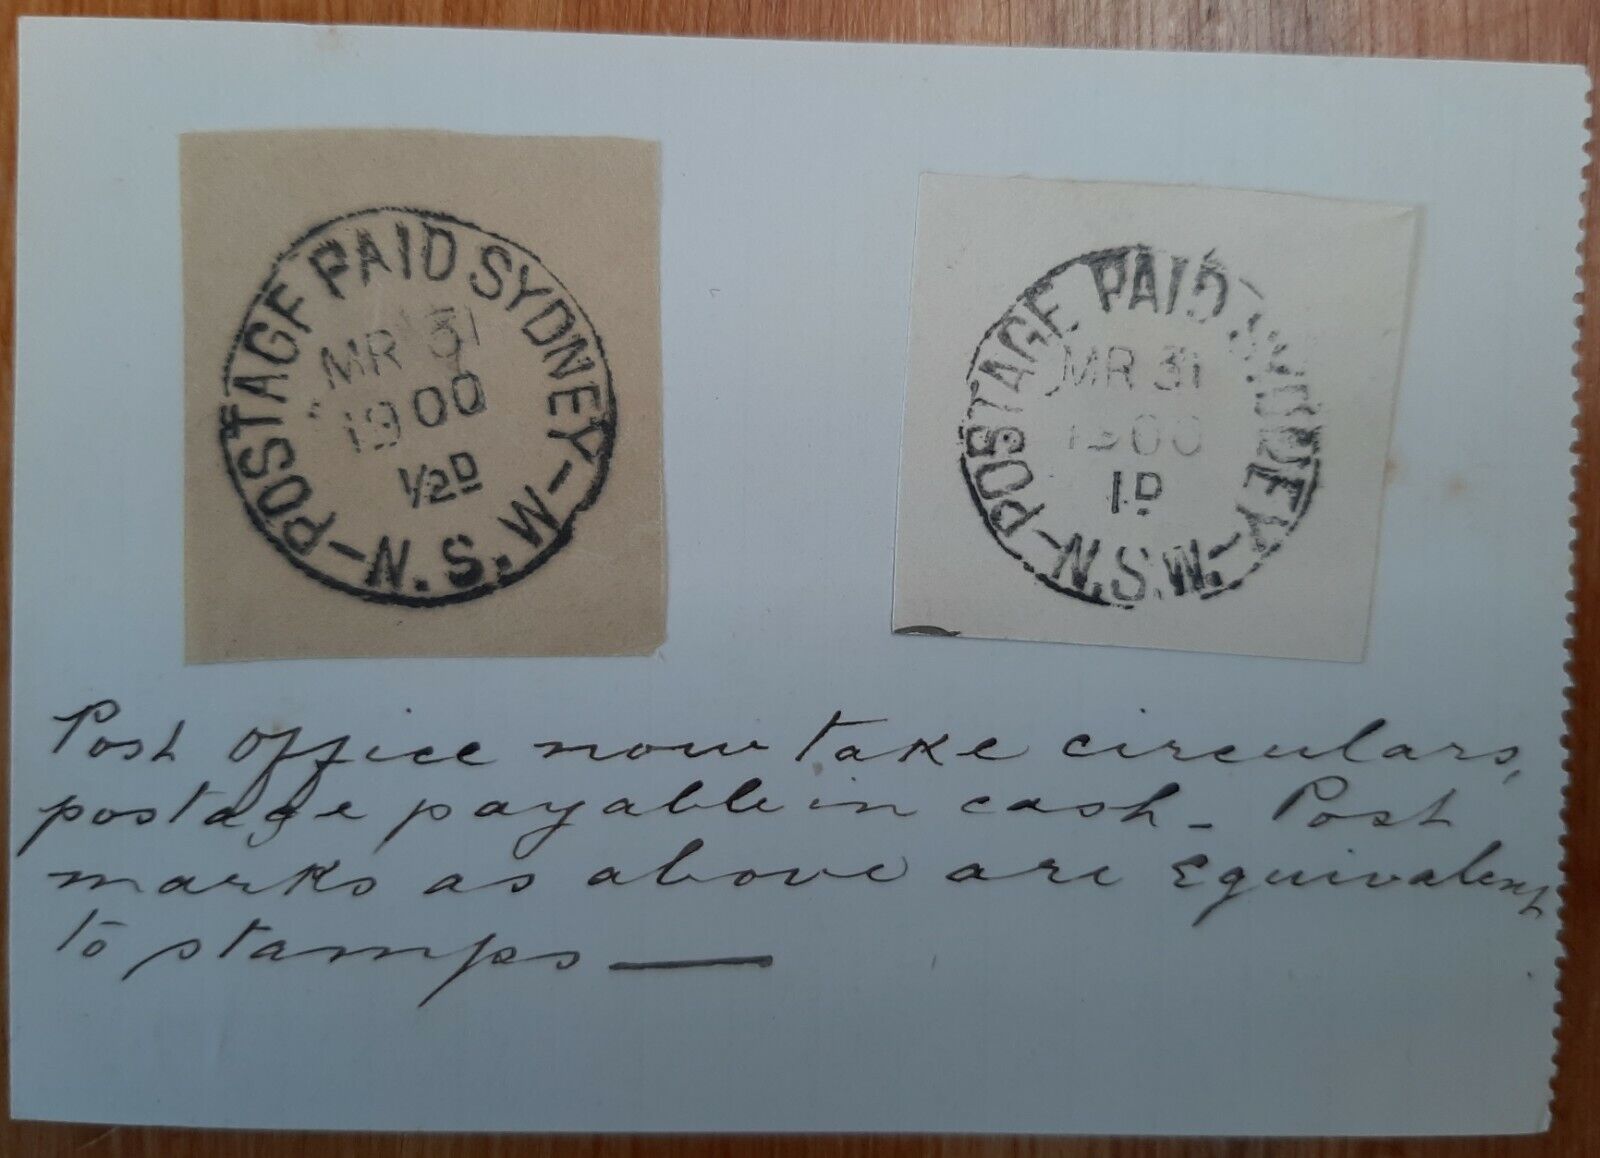 POSTAGE PAID SYDNEY
MR 31
1900
½D
-N.S.W-
POSTAGE PAID SYDNEY
MR 31
1900
1D
-N.S.W.-
Post Office now take circulars,
postage payable in cash - Post
marks as above are Equivalent
to stamps —